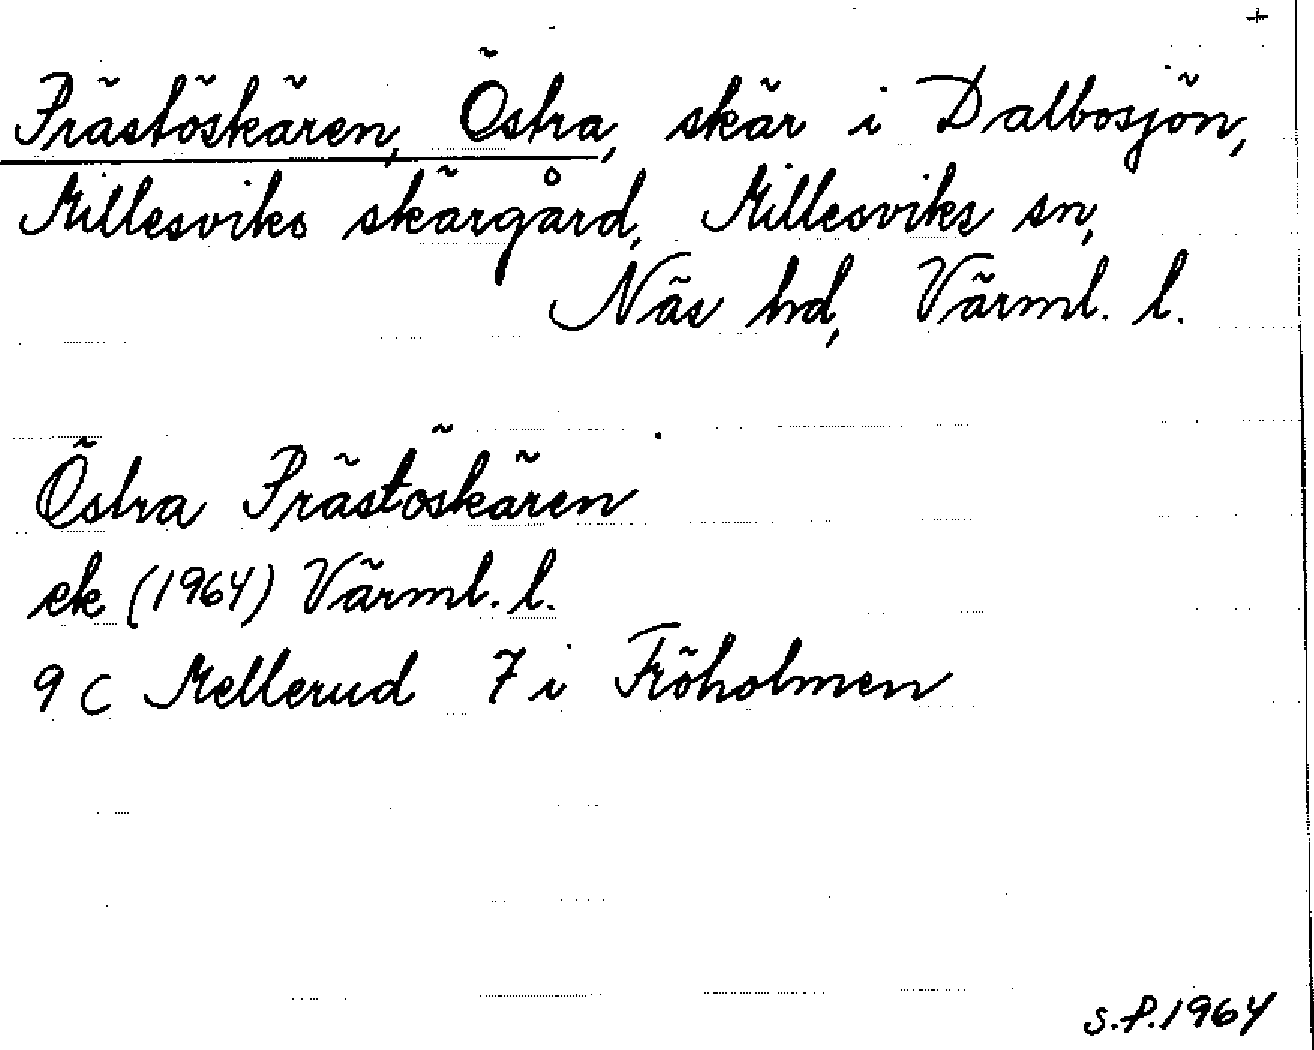 +
Prästöskären, Östra, skär i Dalbosjön,
Millesviks skärgård, Millesviks sn,
Näs hd, Värml. l.
Östra Prästöskären
ek (1964) Värml. l.
9 C Mellerud 7 i Fröholmen
S.P. 1964